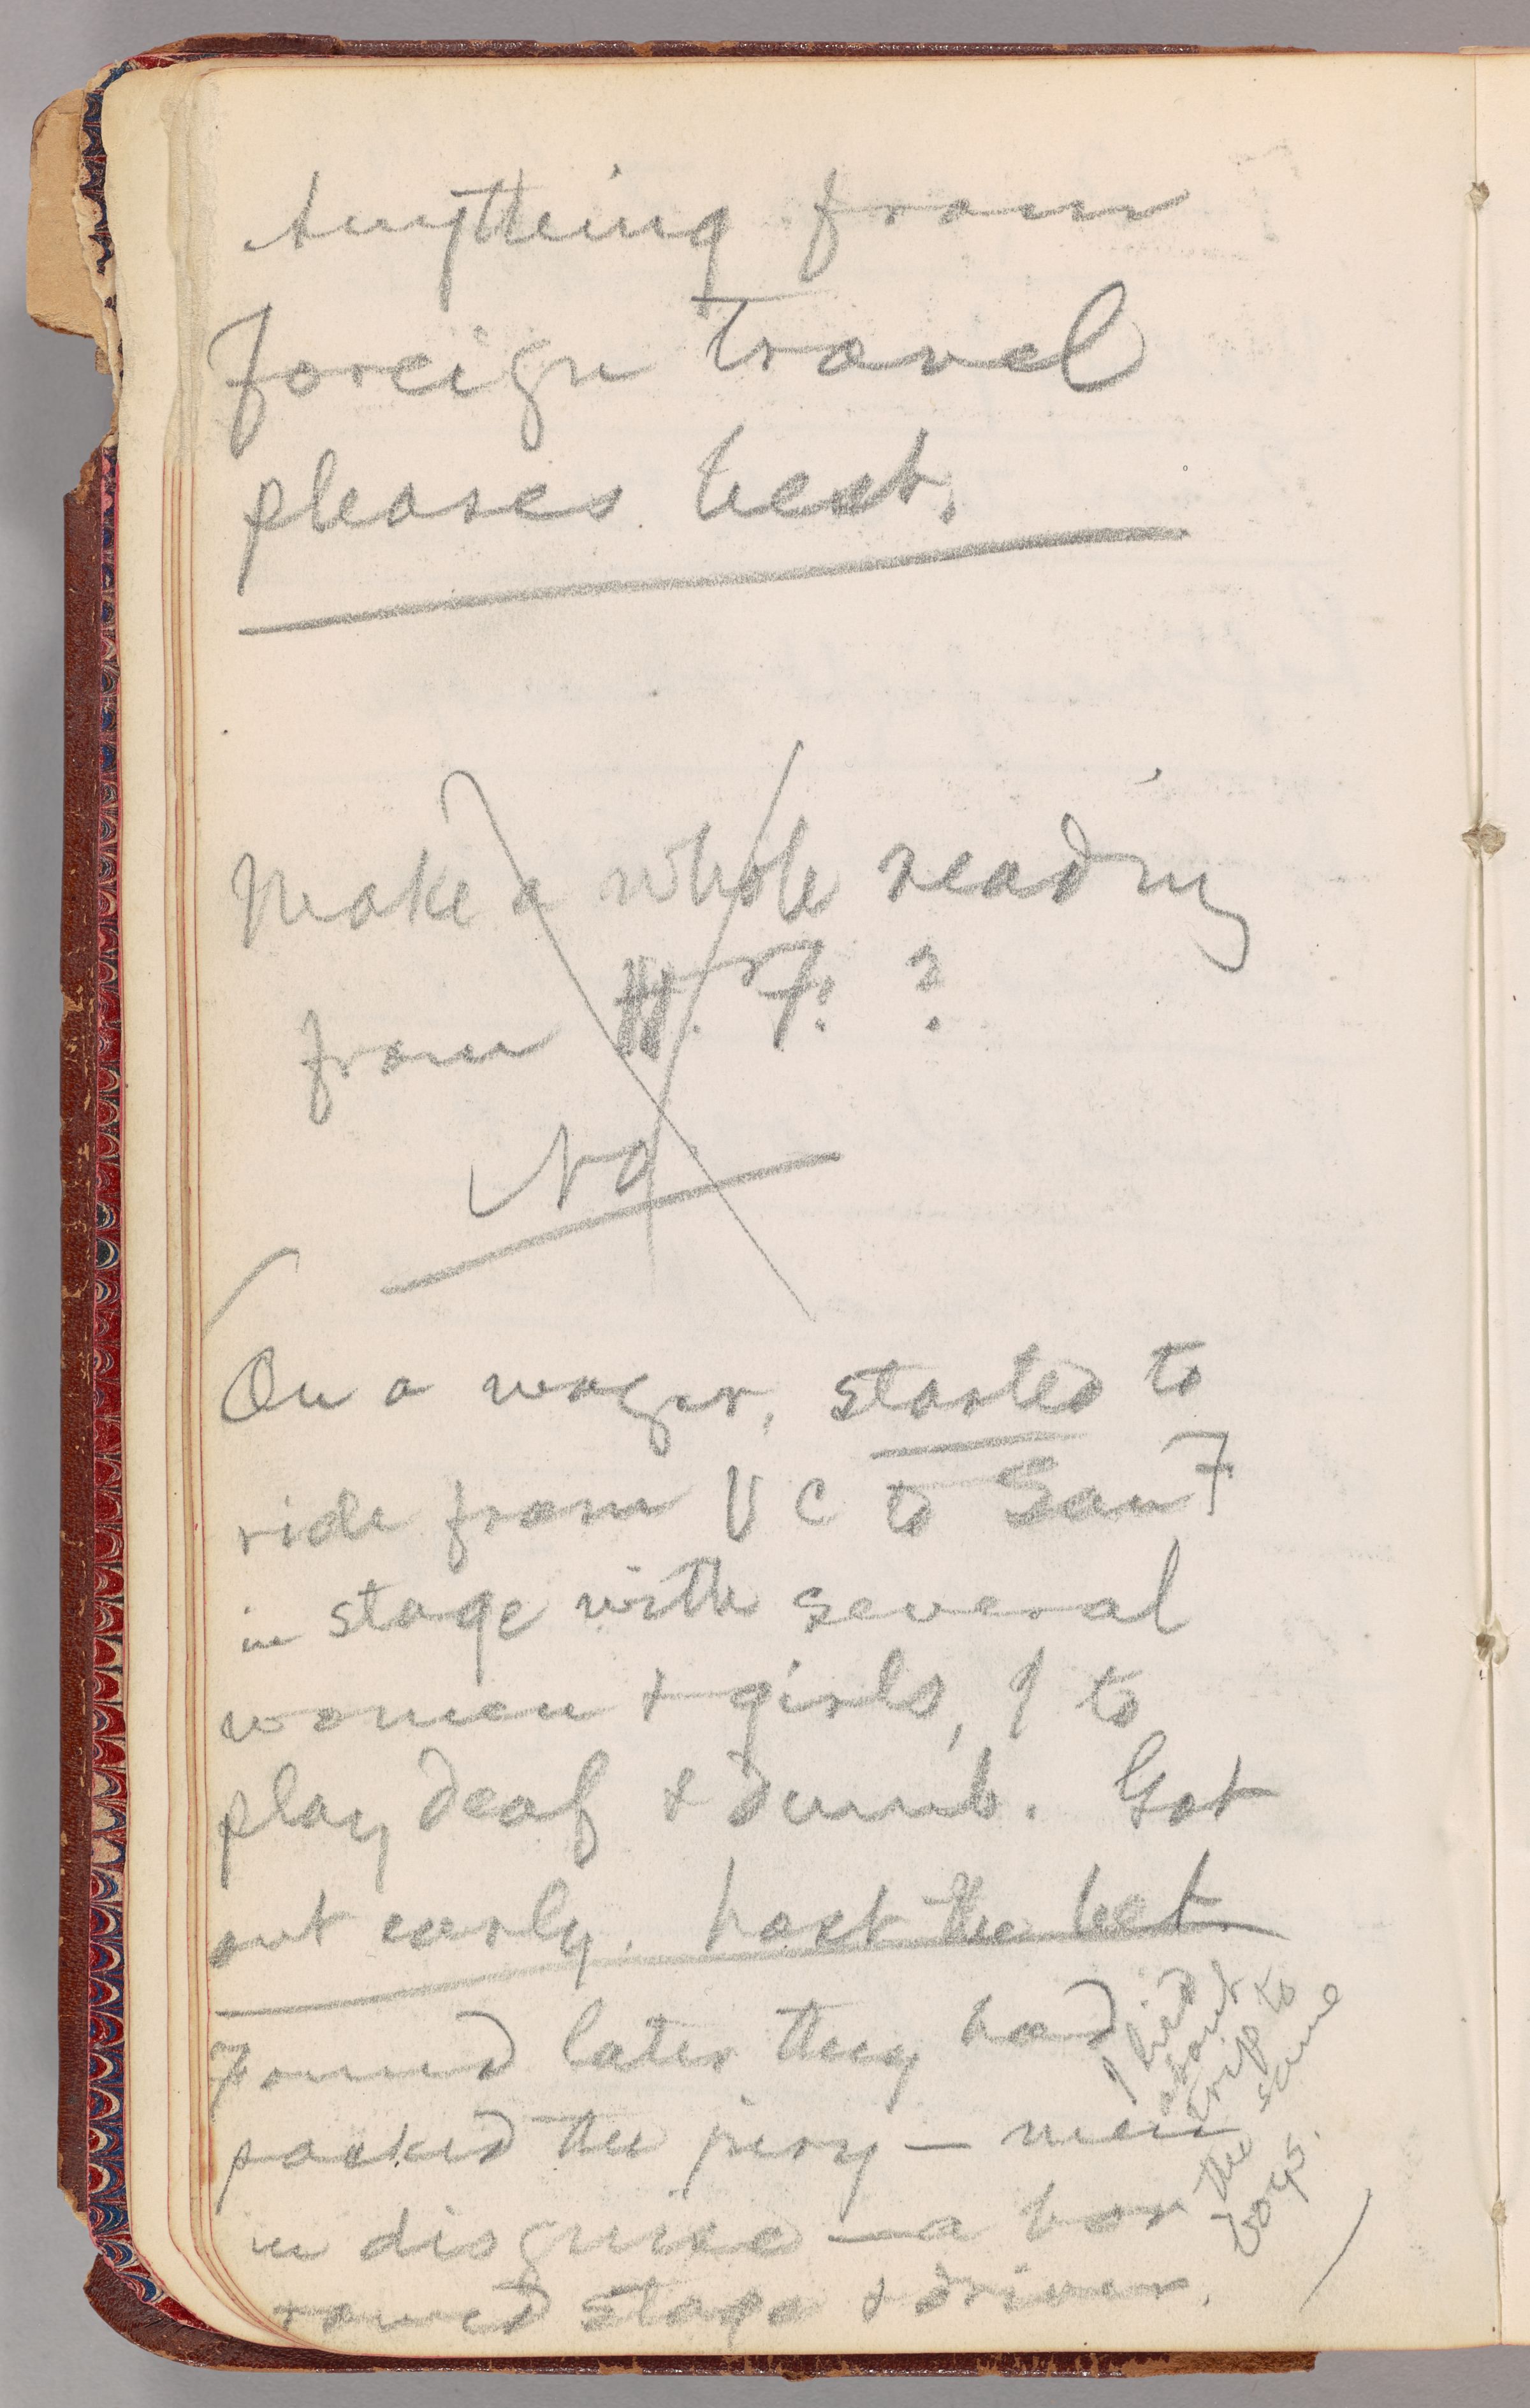 Anything from
foreign travel
pleases best.
Make a whole reading
from H. F. ?
No
On a wager, started to
ride from V C to San F
in stage with several
women & girls, I to
play deaf & dumb. Got
out early. Lost the bet.
Found later they had
packed the jury — men
in disguise — a bor
rowed stage & driver.
I lied
about
trip to
the same
boys.